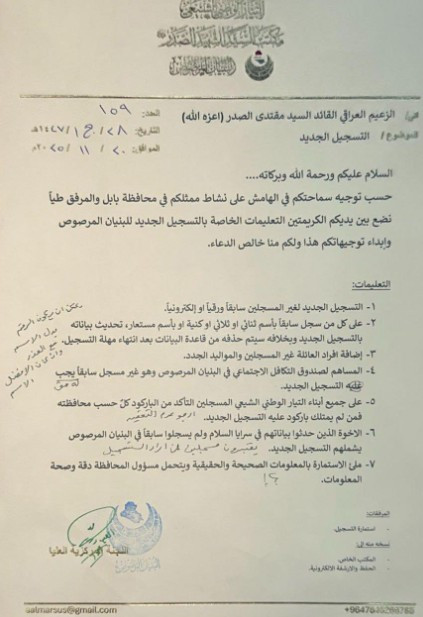 التيار الوطني الشيعي
مكتب السيد الشهيد الصدر
البنيان المرصوص
العدد: ١٥٩
التاريخ: ٢٨ / ج١ / ١٤٤٧هـ
الموافق: ٢٠ / ١١ / ٢٠٢٥م
الى/ الزعيم العراقي القائد السيد مقتدى الصدر (اعزه الله)
الموضوع/ التسجيل الجديد
السلام عليكم ورحمة الله وبركاته....
حسب توجيه سماحتكم في الهامش على نشاط ممثلكم في محافظة بابل والمرفق طياً
نضع بين يديكم الكريمتين التعليمات الخاصة بالتسجيل الجديد للبنيان المرصوص
وإبداء توجيهاتكم هذا ولكم منا خالص الدعاء.
التعليمات:
١- التسجيل الجديد لغير المسجلين سابقاً ورقياً او إلكترونياً.
٢- على كل من سجل سابقاً بأسم ثنائي او ثلاثي او كنية او بأسم مستعار، تحديث بياناته
بالتسجيل الجديد وبخلافه سيتم حذفه من قاعدة البيانات بعد انتهاء مهلة التسجيل.
٣- إضافة افراد العائلة غير المسجلين والمواليد الجدد.
٤- المساهم لصندوق التكافل الاجتماعي في البنيان المرصوص وهو غير مسجل سابقاً يجب
عليه التسجيل الجديد.
٥- على جميع أبناء التيار الوطني الشيعي المسجلين التأكد من الباركود كلّ حسب محافظته
فمن لم يمتلك باركود عليه التسجيل الجديد.
٦- الاخوة الذين حدثوا بياناتهم في سرايا السلام ولم يسجلوا سابقاً في البنيان المرصوص
يشملهم التسجيل الجديد.
٧- ملئ الاستمارة بالمعلومات الصحيحة والحقيقية ويتحمل مسؤول المحافظة دقة وصحة
المعلومات.
اللجنة المركزية العليا
المرفقات:
- استمارة التسجيل.
نسخة منه إلى:
- المكتب الخاص.
- الحفظ والارشفة الالكترونية.